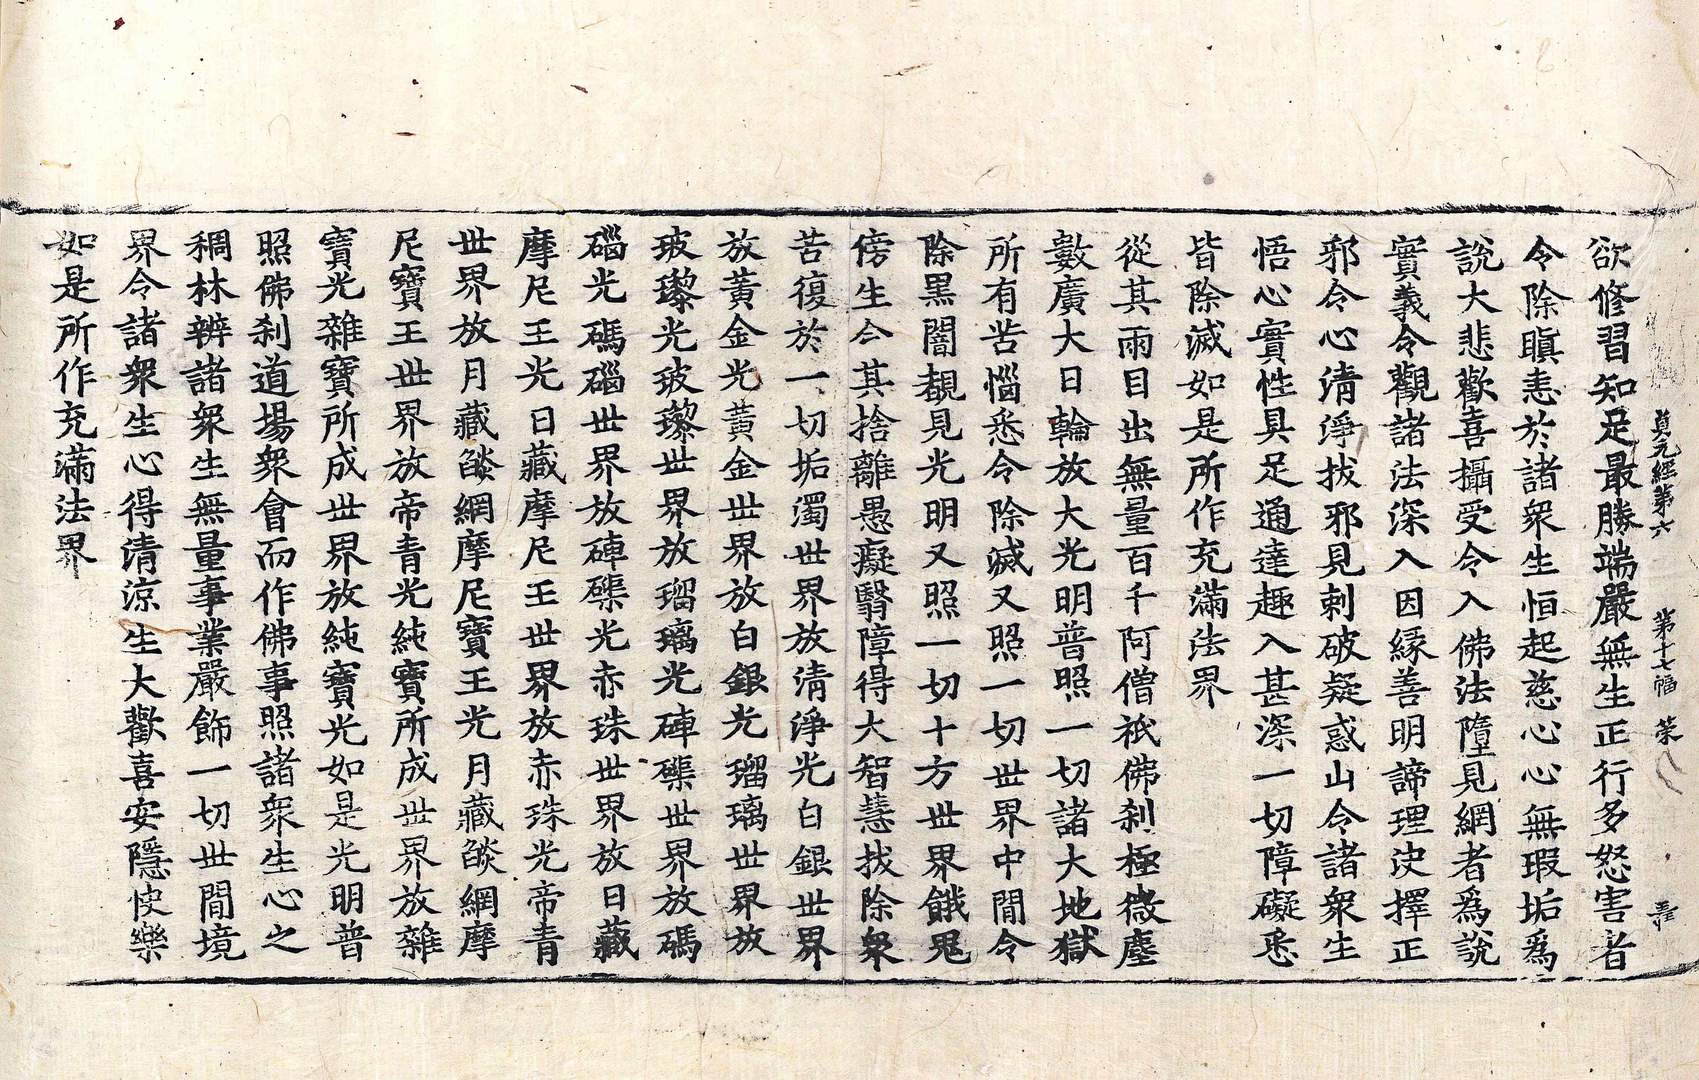 貞元經第六 第十七幅 策
欲修習知足最勝端嚴無生正行多怒害者
令除瞋恚於諸衆生恒起慈心心無瑕垢爲
說大悲歡喜攝受令入佛法墮見網者爲說
實義令觀諸法深入因緣善明諦理決擇正
邪令心清淨拔邪見刺破疑惑山令諸衆生
悟心實性具足通達趣入甚深一切障礙悉
皆除滅如是所作充滿法界
從其兩目出無量百千阿僧祇佛刹極微塵
數廣大日輪放大光明普照一切諸大地獄
所有苦惱悉令除滅又照一切世界中間令
除黑闇覩見光明又照一切十方世界餓鬼
傍生令其捨離愚癡翳障得大智慧拔除衆
苦復於一切垢濁世界放清淨光白銀世界
放黃金光黃金世界放白銀光瑠璃世界放
玻瓈光玻瓈世界放瑠璃光硨磲世界放碼
碯光碼碯世界放硨磲光赤珠世界放日藏
摩尼王光日藏摩尼王世界放赤珠光帝青
世界放月藏燄網摩尼寶王光月藏燄網摩
尼寶王世界放帝青光純寶所成世界放雜
寶光雜寶所成世界放純寶光如是光明普
照佛刹道場衆會而作佛事照諸衆生心之
稠林辨諸衆生無量事業嚴飾一切世間境
界令諸衆生心得清涼生大歡喜安隱快樂
如是所作充滿法界